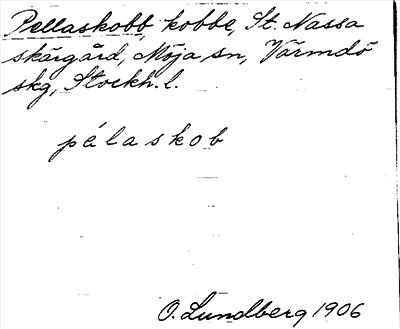 Pellaskobb, kobbe, St. Nassa
skärgård, Möja sn, Värmdö
skg, Stockh. l.
pélaskob
O. Lundberg 1906